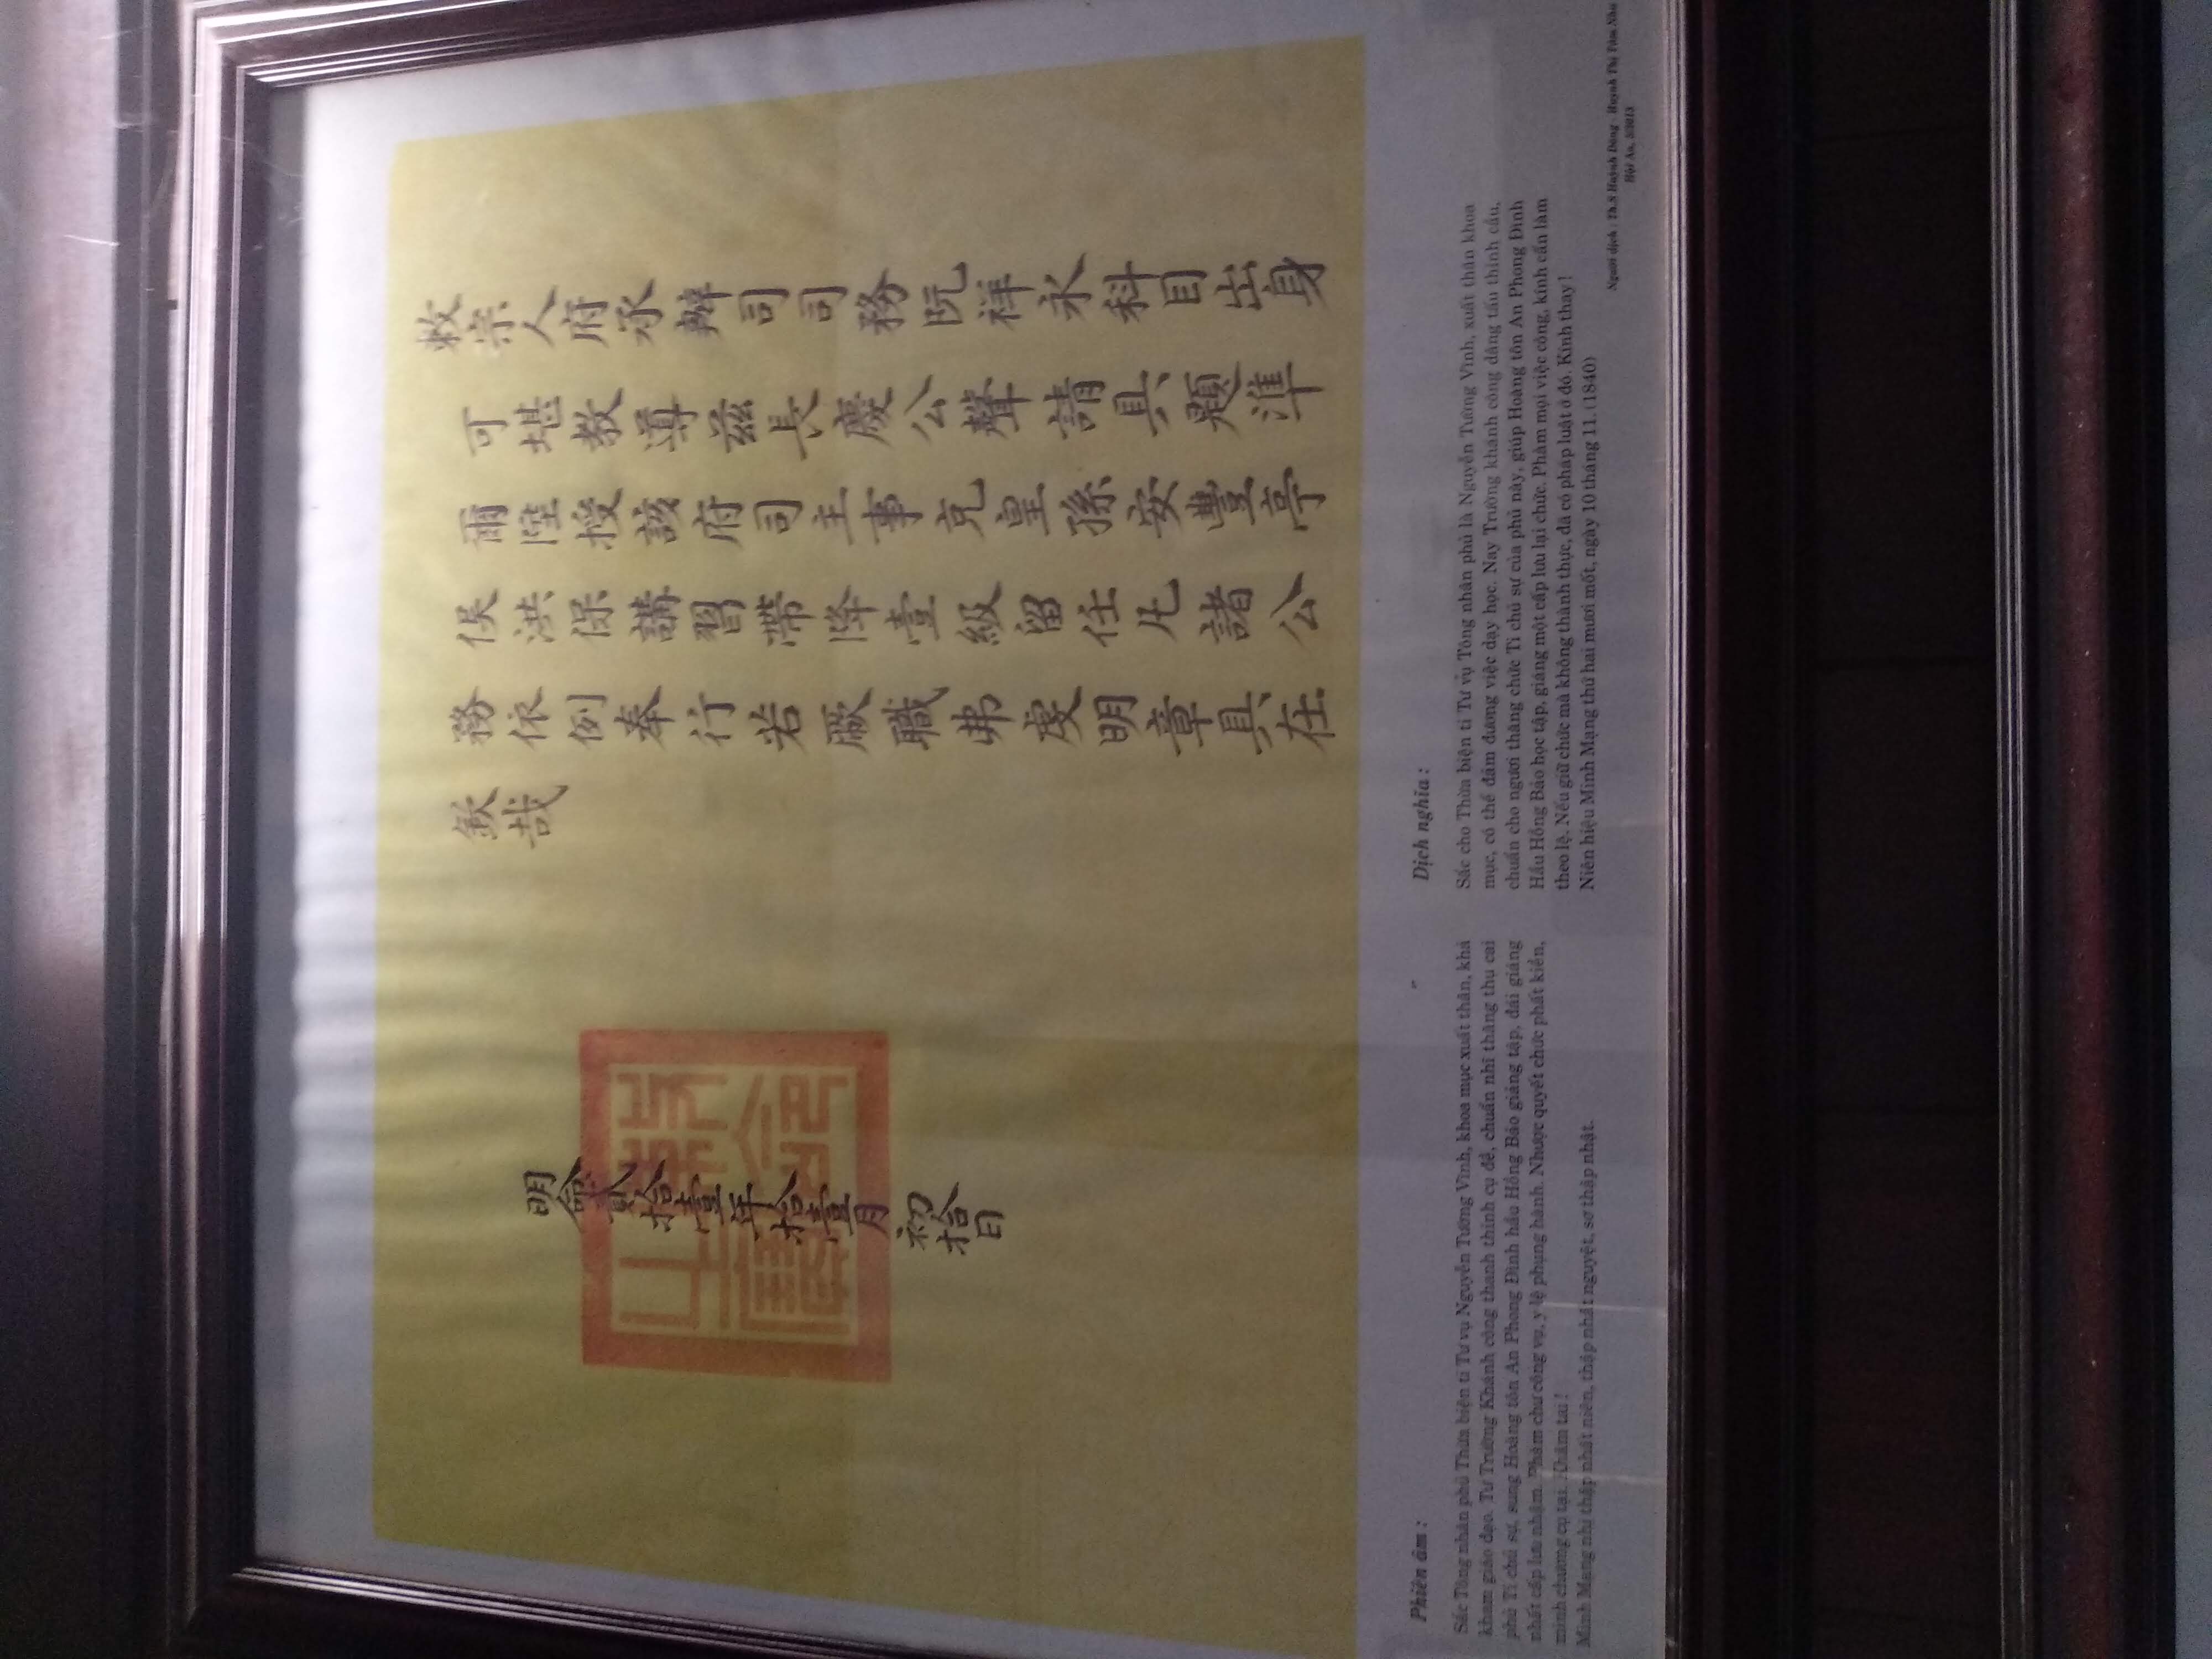 敕宗人府承辦司司務阮祥永科目出身
可堪教導兹長慶公聲請具題準
爾陞授該府司主事充皇孫安豐亭
侯洪保講習帶降壹級留任凡諸公
務依例奉行若厥職弗虔明章具在
欽哉
明命貳拾壹年拾壹月初拾日
敕命之寶
Phiên âm :
Sắc Tông nhân phủ Thừa biện ti Tư vụ Nguyễn Tường Vĩnh, khoa mục xuất thân, khả
kham giáo đạo. Tư Trường Khánh công thanh thỉnh cụ đề, chuẩn nhĩ thăng thụ cai
phủ Ti chủ sự, sung Hoàng tôn An Phong Đình hầu Hồng Bảo giảng tập, đái giáng
nhất cấp lưu nhậm. Phàm chư công vụ, y lệ phụng hành. Nhược quyết chức phất kiền,
minh chương cụ tại. Khâm tai !
Minh Mạng nhị thập nhất niên, thập nhất nguyệt, sơ thập nhật.
Dịch nghĩa :
Sắc cho Thừa biện ti Tư vụ Tông nhân phủ là Nguyễn Tường Vĩnh, xuất thân khoa
mục, có thể đảm đương việc dạy học. Nay Trường khánh công dâng tấu thỉnh cầu,
chuẩn cho ngươi thăng chức Ti chủ sự của phủ này, giúp Hoàng tôn An Phong Đình
Hầu Hồng Bảo học tập, giáng một cấp lưu lại chức. Phàm mọi việc công, kính cẩn làm
theo lệ. Nếu giữ chức mà không thành thực, đã có pháp luật ở đó. Kính thay !
Niên hiệu Minh Mạng thứ hai mươi mốt, ngày 10 tháng 11. (1840)
Người dịch : Th.S Huỳnh Dõng - Huỳnh Thị Tâm Như
Hội An,